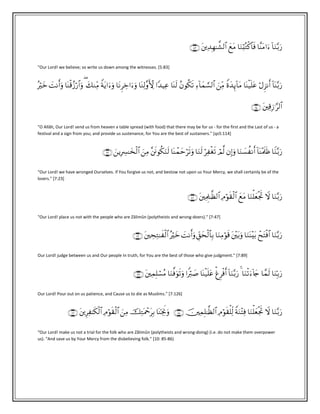 رَبَّنَآ ءَامَنَّا فَٱكْتُبْنَا مَعَ ٱلشَّـٰهِدِينَ ﴿٨٣﴾
"Our Lord! we believe; so write us down among the witnesses. [5:83]
رَبَّنَآ أَنزِلْ عَلَيْنَا مَآئِدَةً مِّنَ ٱلسَّمَآءِ تَكُونُ لَنَا عِيدًا لِّأَوَّلِنَا وَءَاخِرِنَا وَءَايَةً مِّنكَ ۖ وَٱرْزُقْنَا وَأَنتَ خَيْرُ
ٱلرَّٰزِقِينَ ﴿١١٤﴾
"O Allâh, Our Lord! send us from heaven a table spread (with food) that there may be for us - for the first and the Last of us - a
festival and a sign from you; and provide us sustenance, for You are the best of sustainers." [sp5:114]
رَبَّنَا ظَلَمْنَآ أَنفُسَنَا وَإِن لَّمْ تَغْفِرْ لَنَا وَتَرْحَمْنَا لَنَكُونَنَّ مِنَ ٱلْخَـٰسِرِينَ ﴿٢٣﴾
"Our Lord! we have wronged Ourselves. If You forgive us not, and bestow not upon us Your Mercy, we shall certainly be of the
losers." [7:23]
رَبَّنَا لَا تَجْعَلْنَا مَعَ ٱلْقَوْمِ ٱلظَّـٰلِمِينَ ﴿٤٧﴾
"Our Lord! place us not with the people who are Zâlimûn (polytheists and wrong-doers)." [7:47]
رَبَّنَا ٱفْتَحْ بَيْنَنَا وَبَيْنَ قَوْمِنَا بِٱلْحَقِّ وَأَنتَ خَيْرُ ٱلْفَـٰتِحِينَ ﴿٨٩﴾
Our Lord! judge between us and Our people In truth, for You are the best of those who give judgment." [7:89]
رَبَّنَا لَمَّا جَآءَتْنَا ۚ رَبَّنَآ أَفْرِغْ عَلَيْنَا صَبْرًا وَتَوَفَّنَا مُسْلِمِينَ ﴿١٢٦﴾
Our Lord! Pour out on us patience, and Cause us to die as Muslims." [7:126]
رَبَّنَا لَا تَجْعَلْنَا فِتْنَةً لِّلْقَوْمِ ٱلظَّـٰلِمِينَ ﴿٨٥﴾ وَنَجِّنَا بِرَحْمَتِكَ مِنَ ٱلْقَوْمِ ٱلْكَـٰفِرِينَ ﴿٨٦﴾
"Our Lord! make us not a trial for the folk who are Zâlimûn (polytheists and wrong-doing) (i.e. do not make them overpower
us). "And save us by Your Mercy from the disbelieving folk." [10: 85-86)